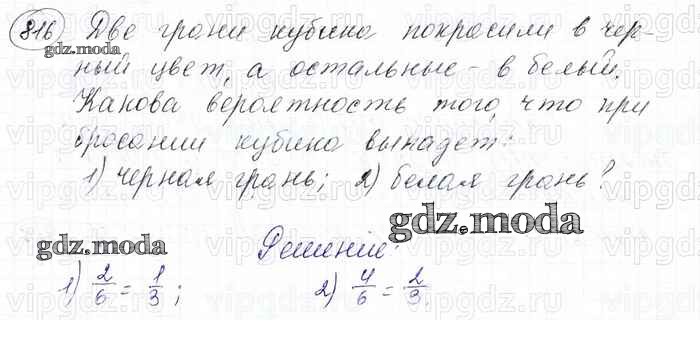 816 Две грани кубика покрасили в чер-
ный цвет, а остальные - в белый.
Какова вероятность того, что при
бросании кубика выпадет:
1) черная грань; 2) белая грань?
Решение:
1) 2/6 = 1/3; 2) 4/6 = 2/3
gdz.moda
gdz.moda
gdz.moda
vipgdz.ru